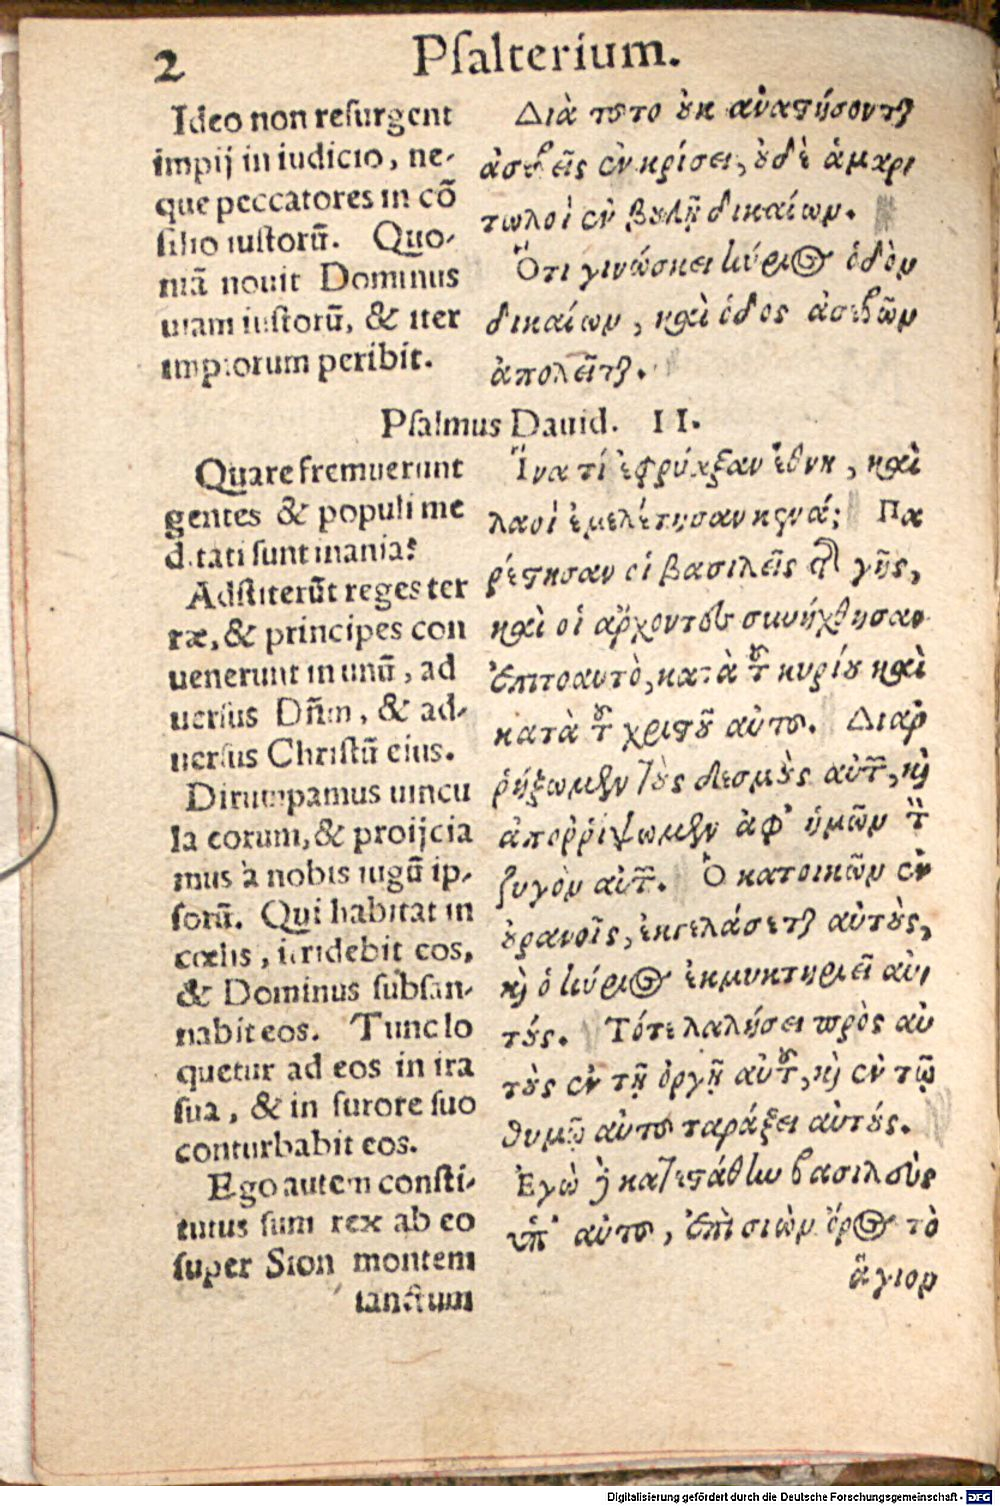 2
Psalterium.
Ideo non resurgent
impij in iudicio, ne-
que peccatores in cō
silio iustorū. Quo-
niā nouit Dominus
uiam iustorū, & iter
impiorum peribit.
Διὰ τοῦτο οὐκ ἀναστήσονται
ἀσεβεῖς ἐν κρίσει, οὐδὲ ἁμαρ
τωλοὶ ἐν βουλῇ δικαίων.
Ὅτι γινώσκει κύριος ὁδὸν
δικαίων, καὶ ὁδος ἀσεβῶν
ἀπολεῖται.
Psalmus Dauid. II.
Quare fremuerunt
gentes & populi me
ditati sunt inania?
Adstiterūt reges ter
ræ, & principes con
uenerunt in unū, ad
uersus Dn̄m, & ad-
uersus Christū eius.
Dirumpamus uincu
la eorum, & proijcia
mus à nobis iugū ip-
sorū. Qui habitat in
cœlis, irridebit eos,
& Dominus subsan-
nabit eos. Tunc lo
quetur ad eos in ira
sua, & in furore suo
conturbabit eos.
Ego autem consti-
tutus sum rex ab eo
super Sion montem
sanctum
Ἵνα τί ἐφρύαξαν ἔθνη, καὶ
λαοὶ ἐμελέτησαν κενά; Πα
ρέστησαν οἱ βασιλεῖς τῆς γῆς,
καὶ οἱ ἄρχοντες συνήχθησαν
ἐπιτοαυτὸ, κατὰ τοῦ κυρίου καὶ
κατὰ τοῦ χριστοῦ αὐτοῦ. Διαῤ
ῥήξωμεν τοὺς δεσμοὺς αὐτῶν, καὶ
ἀποῤῥίψωμεν ἀφ' ἡμῶν τὸν
ζυγὸν αὐτῶν. Ὁ κατοικῶν ἐν
οὐρανοῖς, ἐκγελάσεται αὐτοὺς,
καὶ ὁ κύριος ἐκμυκτηριεῖ αὐ
τούς. Τότε λαλήσει πρὸς αὐ
τοὺς ἐν τῇ ὀργῇ αὐτοῦ, καὶ ἐν τῷ
θυμῷ αὐτοῦ ταράξει αὐτούς.
Ἐγὼ δὲ κατεστάθην βασιλεὺς
ὑπ' αὐτοῦ, ἐπὶ σιὼν ὄρος τὸ
ἅγιον
Digitalisierung gefördert durch die Deutsche Forschungsgemeinschaft - DFG